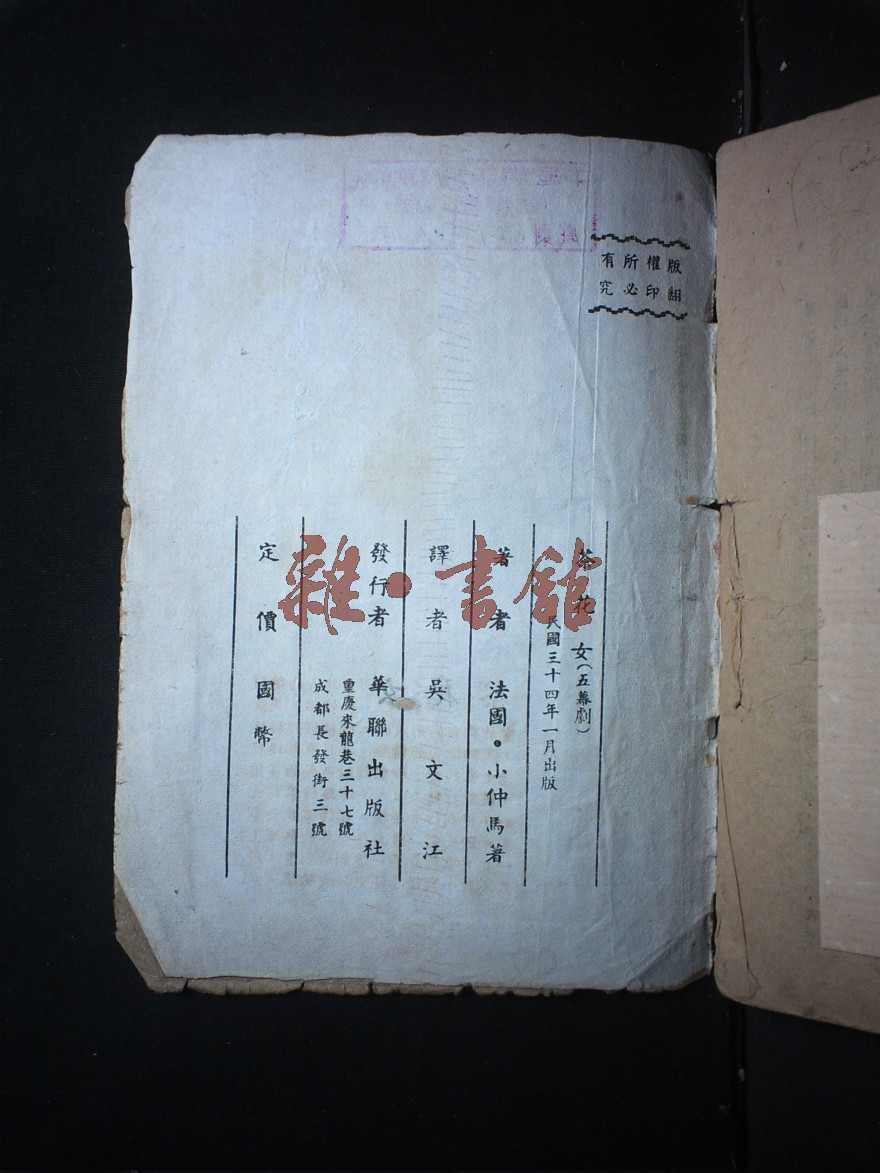 版權所有
翻印必究
茶花女(五幕劇)
民國三十四年一月出版
著者 法國•小仲馬著
譯者 吳文江
發行者 華聯出版社
重慶來龍巷三十七號
成都長發街三號
定價國幣
雜•書館